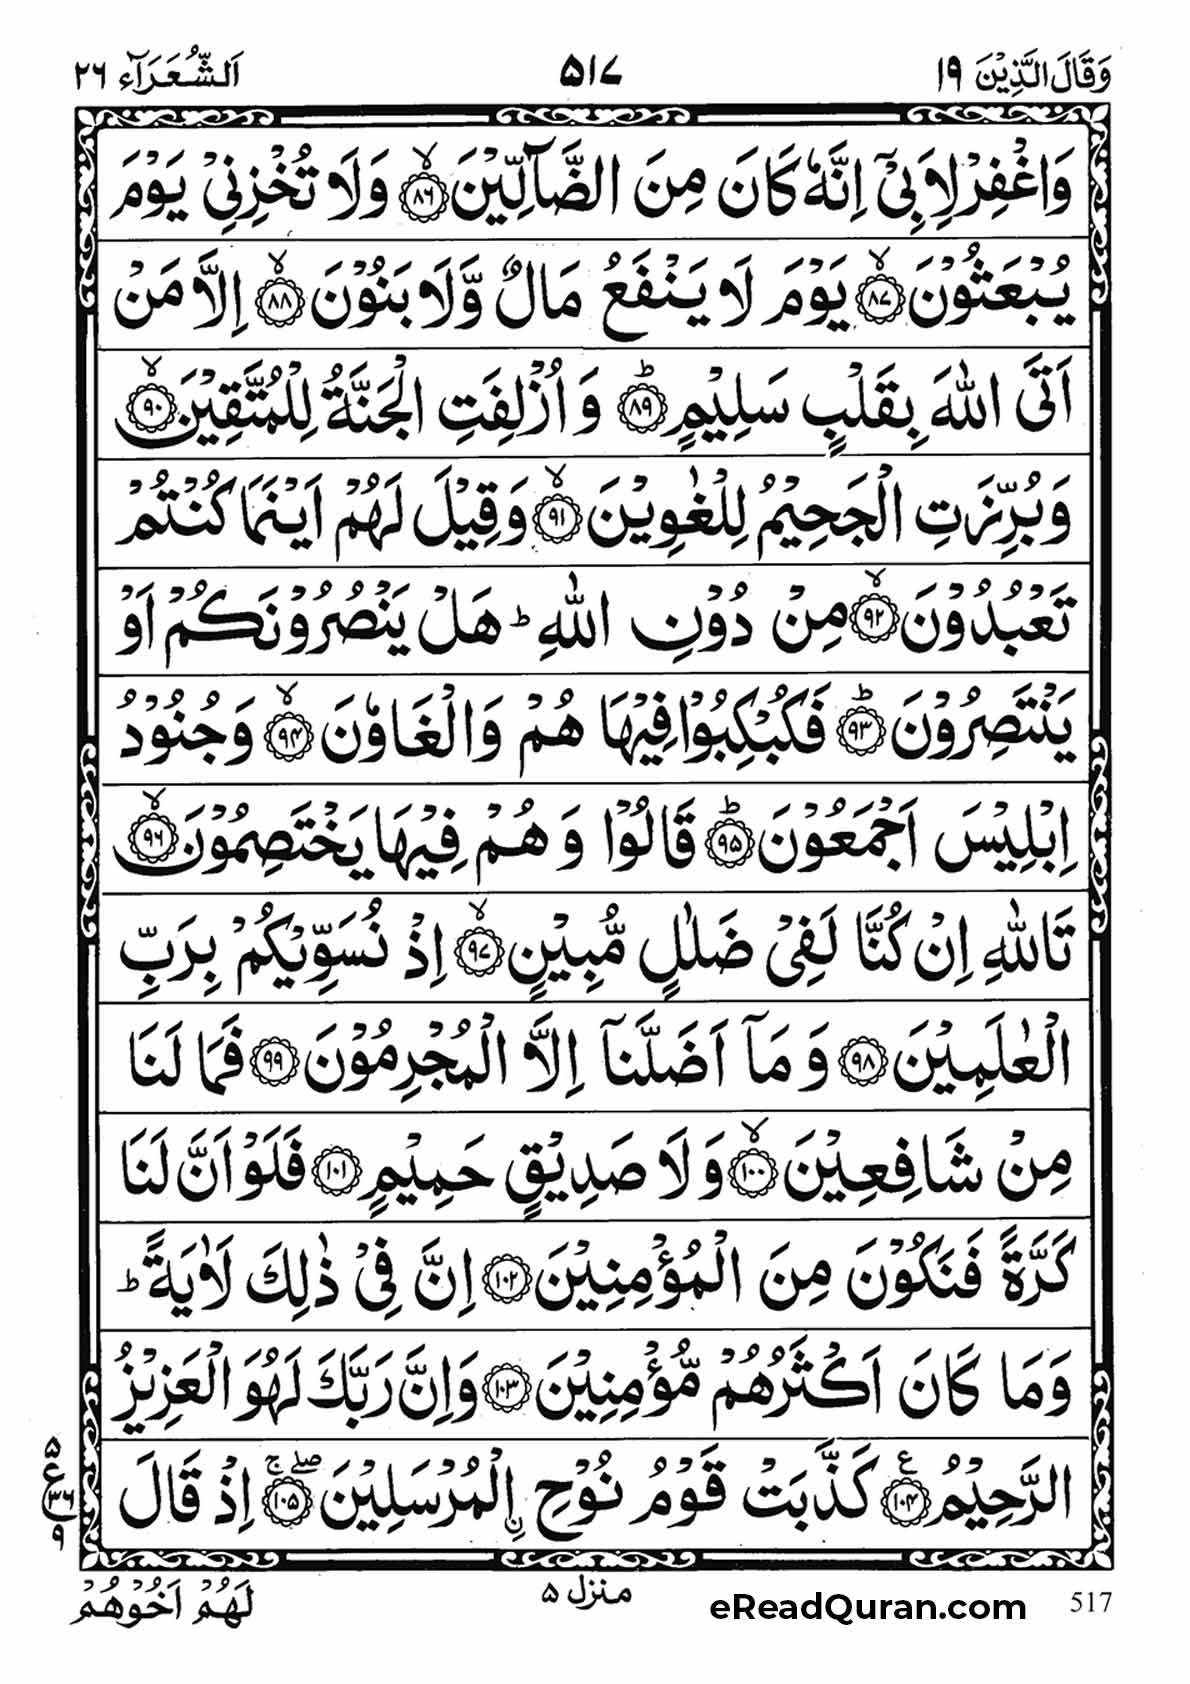 وَقَالَ الَّذِيْنَ ١٩
٥١٧
اَلشُّعَرَآء ٢٦
وَاغْفِرْ لِاَبِىْٓ اِنَّهٗ كَانَ مِنَ الضَّآلِّيْنَ ۙ‏﴿۸۶﴾ وَلَا تُخْزِنِىْ يَوْمَ
يُبْعَثُوْنَ ۙ‏﴿۸۷﴾ يَوْمَ لَا يَنْفَعُ مَالٌ وَّلَا بَنُوْنَ ۙ‏﴿۸۸﴾ اِلَّا مَنْ
اَتَى اللّٰهَ بِقَلْبٍ سَلِيْمٍ ؕ‏﴿۸۹﴾ وَاُزْلِفَتِ الْجَنَّةُ لِلْمُتَّقِيْنَ ۙ‏﴿۹۰﴾
وَبُرِّزَتِ الْجَحِيْمُ لِلْغٰوِيْنَ ۙ‏﴿۹۱﴾ وَقِيْلَ لَهُمْ اَيْنَمَا كُنْتُمْ
تَعْبُدُوْنَ ۙ‏﴿۹۲﴾ مِنْ دُوْنِ اللّٰهِ ؕ هَلْ يَنْصُرُوْنَكُمْ اَوْ
يَنْتَصِرُوْنَ ؕ‏﴿۹۳﴾ فَكُبْكِبُوْا فِيْهَا هُمْ وَالْغَاوٗنَ ۙ‏﴿۹۴﴾ وَجُنُوْدُ
اِبْلِيْسَ اَجْمَعُوْنَ ؕ‏﴿۹۵﴾ قَالُوْا وَهُمْ فِيْهَا يَخْتَصِمُوْنَ ۙ‏﴿۹۶﴾
تَاللّٰهِ اِنْ كُنَّا لَفِىْ ضَلٰلٍ مُّبِيْنٍ ۙ‏﴿۹۷﴾ اِذْ نُسَوِّيْكُمْ بِرَبِّ
الْعٰلَمِيْنَ ‏﴿۹۸﴾ وَمَآ اَضَلَّنَآ اِلَّا الْمُجْرِمُوْنَ ‏﴿۹۹﴾ فَمَا لَنَا
مِنْ شَافِعِيْنَ ۙ‏﴿۱۰۰﴾ وَلَا صَدِيْقٍ حَمِيْمٍ ‏﴿۱۰۱﴾ فَلَوْ اَنَّ لَنَا
كَرَّةً فَنَكُوْنَ مِنَ الْمُؤْمِنِيْنَ ‏﴿۱۰۲﴾ اِنَّ فِىْ ذٰلِكَ لَاٰيَةً ؕ
وَمَا كَانَ اَكْثَرُهُمْ مُّؤْمِنِيْنَ ‏﴿۱۰۳﴾ وَاِنَّ رَبَّكَ لَهُوَ الْعَزِيْزُ
الرَّحِيْمُ ‏﴿۱۰۴﴾ ع كَذَّبَتْ قَوْمُ نُوْحِ ۨالْمُرْسَلِيْنَ ۖۚ‏﴿۱۰۵﴾ اِذْ قَالَ
۵
ع
۳۶
۹
لَهُمْ اَخُوْهُمْ
منزل ۵
eReadQuran.com
517